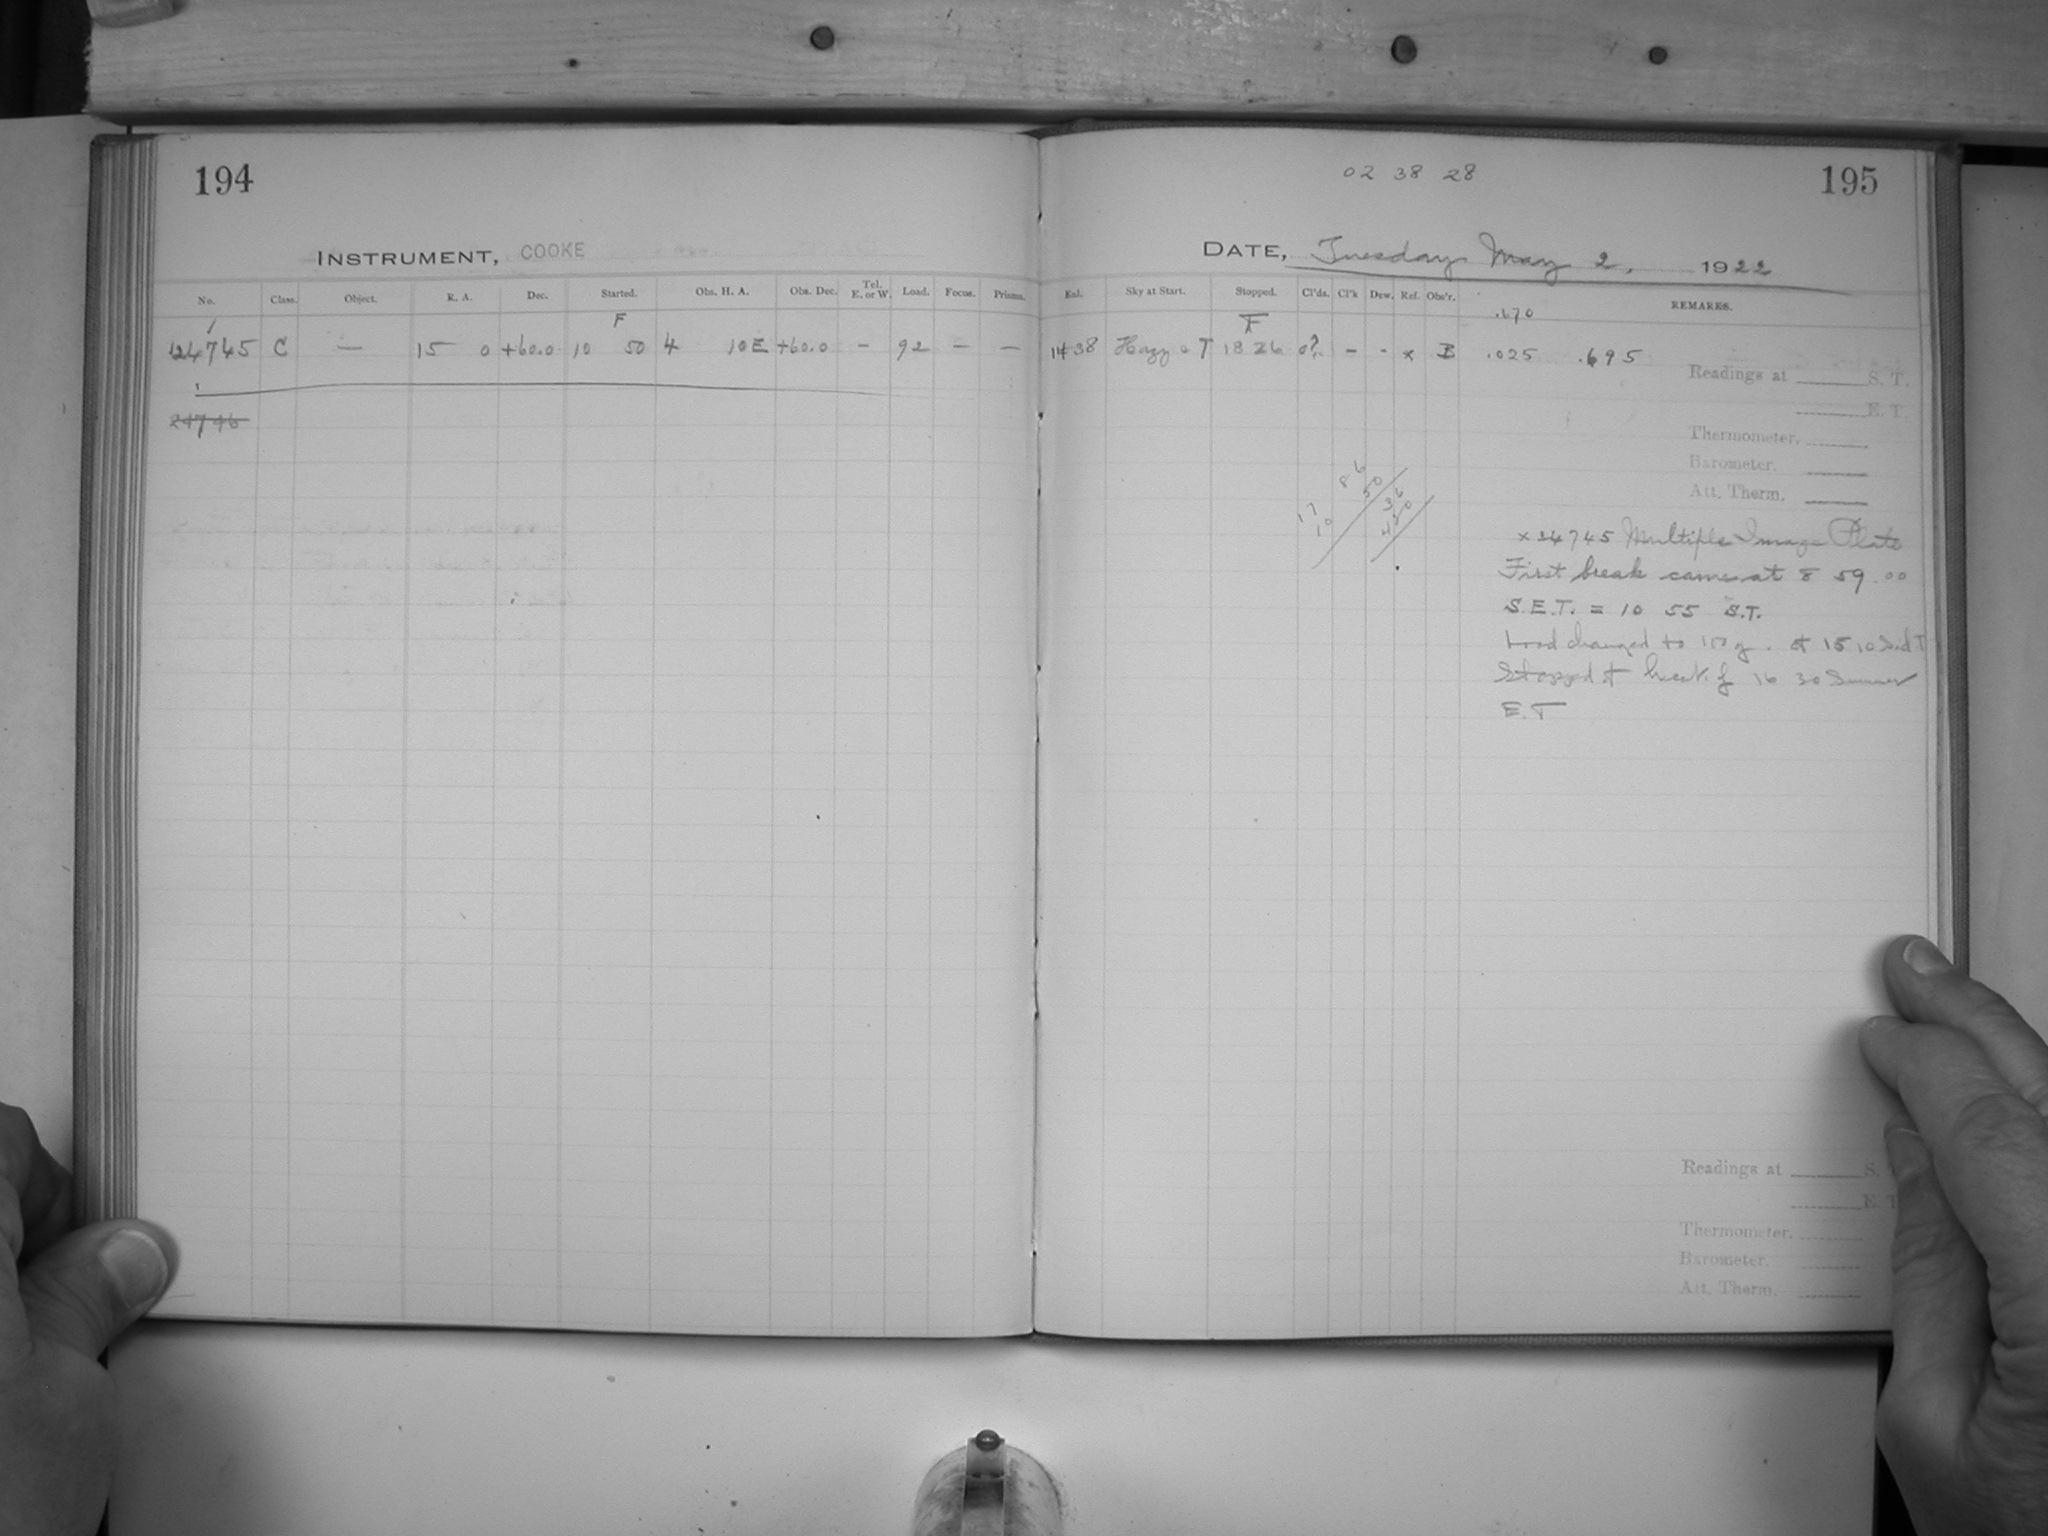 194
INSTRUMENT, COOKE
No. Class. Object. R. A. Dec. Started. Obs. H. A. Obs. Dec. Tel. E. or W. Load. Focus. Prisms.
F
24745 C — 15 0 +60.0 10 50 4 10E +60.0 – 92 – —
24746
02 38 28
195
DATE, Tuesday May 2, 1922
Eal. Sky at Start. Stopped. Cl'ds. Cl'k Dew. Ref. Obs'r. REMARKS.
.670
F
38 Hazy 0 T 18 26 0? – - x B .025 .695
Readings at S. T.
E. T.
Thermometer.
Barometer.
Att. Therm.
8 6
50
17
10
36
420
x 24745 Multiple Image Plate
First break came at 8 59.00
S.E.T. = 10 55 S.T.
Load changed to at 15 10 Sid T
Stopped at break of 16 30 Summer
E.T
Readings at S.
E. T
Thermometer.
Barometer.
Att. Therm.